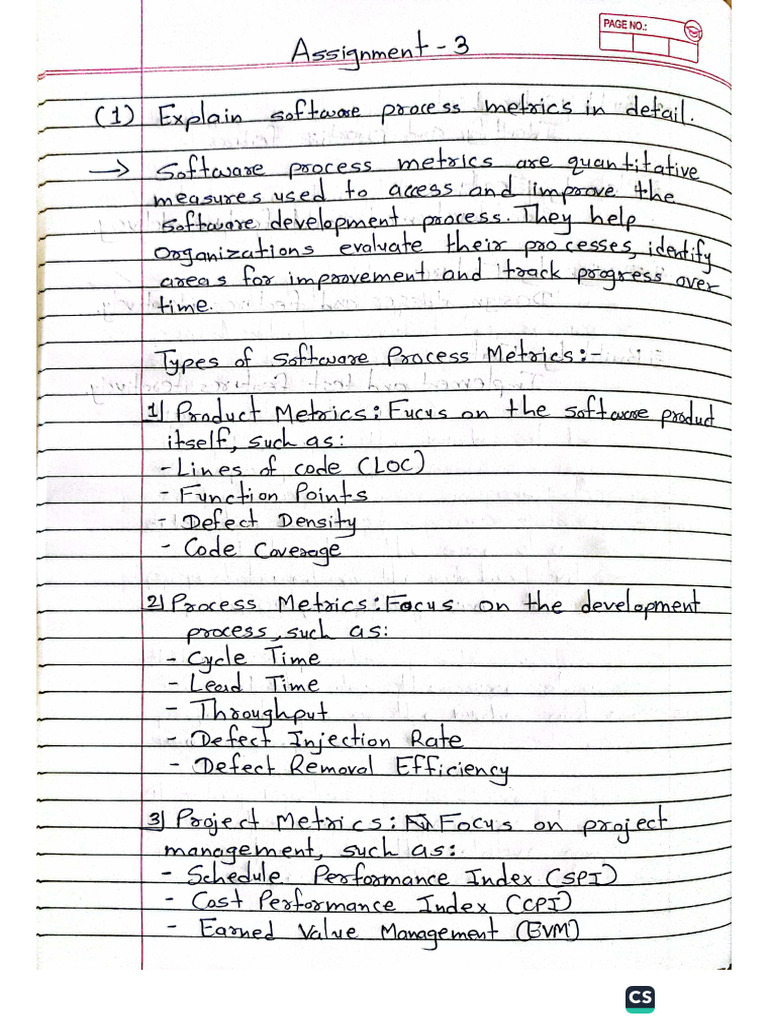 PAGE NO.:
Assignment - 3
(1) Explain software process metrics in detail.
→ Software process metrics are quantitative
measures used to access and improve the
software development process. They help
organizations evaluate their processes, identify
areas for improvement and track progress over
time.
Types of Software Process Metrics:-
1) Product Metrics: Fucus on the software product
itself, such as:
- Lines of code (LOC)
- Function Points
- Defect Density
- Code Coverage
2) Process Metrics: Focus on the development
process, such as:
- Cycle Time
- Lead Time
- Throughput
- Defect Injection Rate
- Defect Removal Efficiency
3) Project Metrics: Focus on project
management, such as:
- Schedule Performance Index (SPI)
- Cost Performance Index (CPI)
- Earned Value Management (EVM)
CS